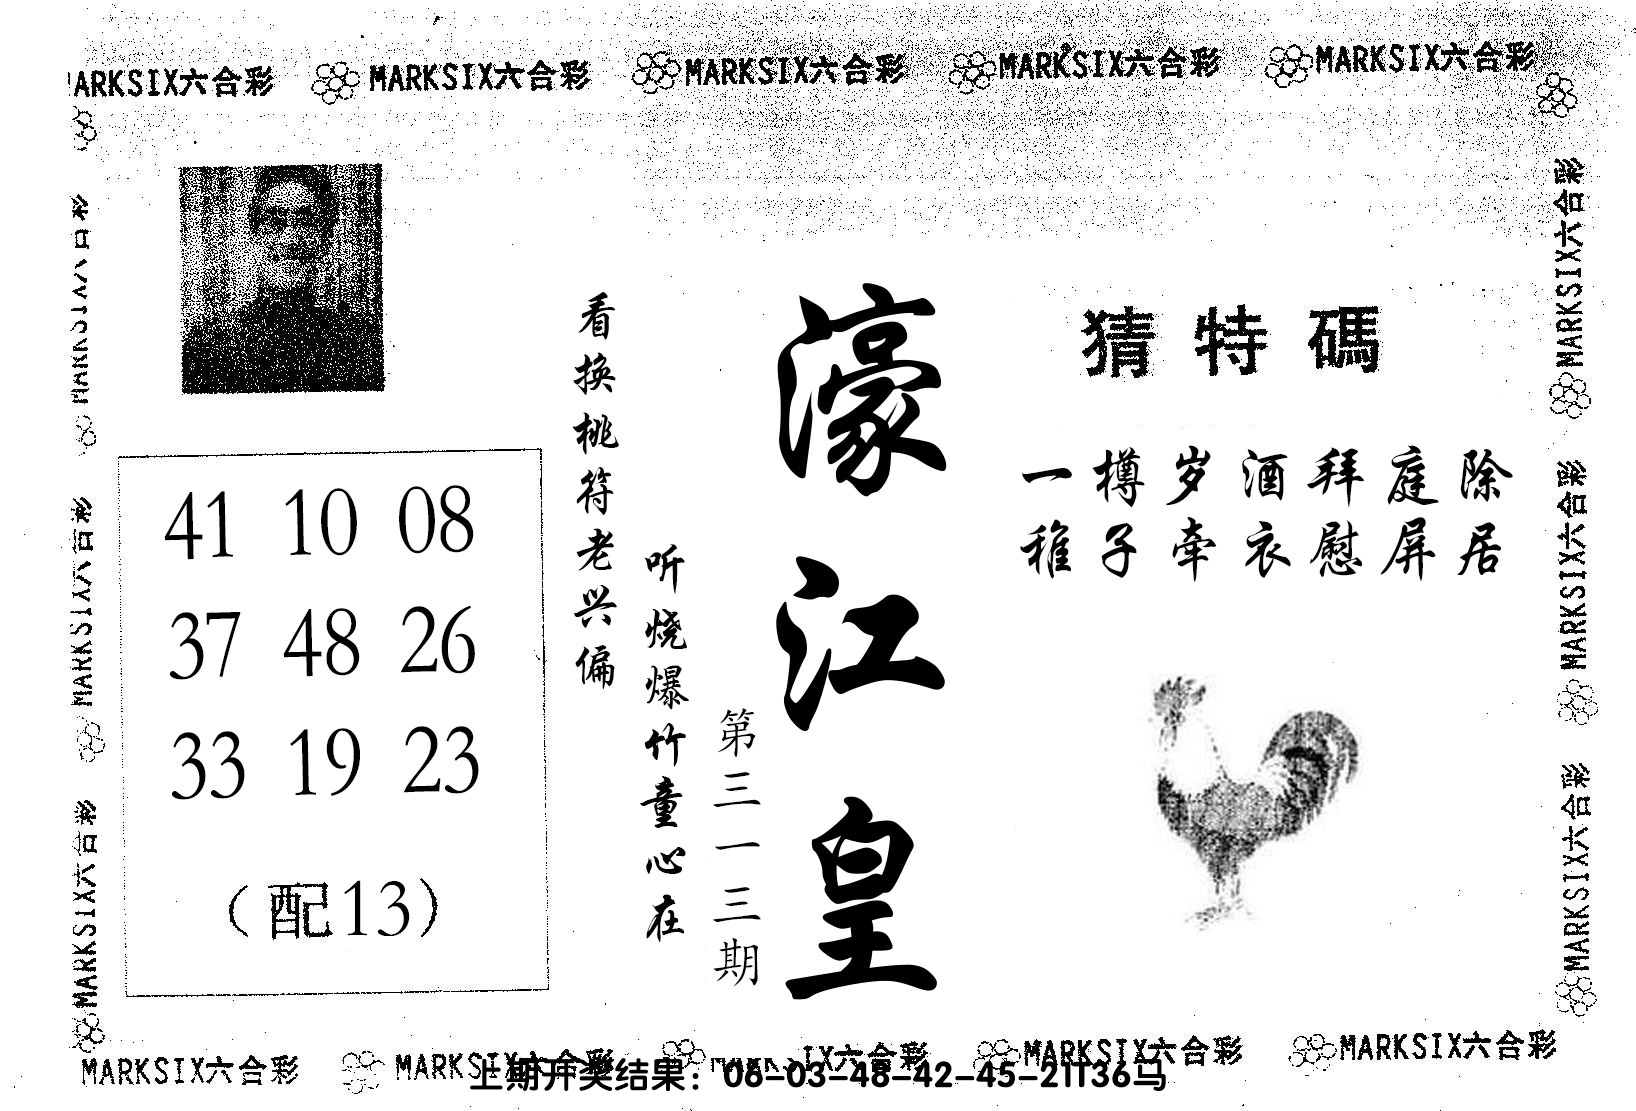 MARKSIX六合彩 MARKSIX六合彩 MARKSIX六合彩 MARKSIX六合彩
MARKSIX六合彩
MARKSIX六合彩
MARKSIX六合彩
MARKSIX六合彩
MARKSIX六合彩
MARKSIX六合彩
猜特碼
一樽岁酒拜庭除
稚子牵衣慰屏居
濠江皇
第三一三期
听烧爆竹童心在
看换桃符老兴偏
41 10 08
37 48 26
33 19 23
（配13）
MARKSIX六合彩 MARKSIX六合彩 六合彩 MARKSIX六合彩 MARKSIX六合彩
上期开奖结果：06-03-48-42-45-21T36马